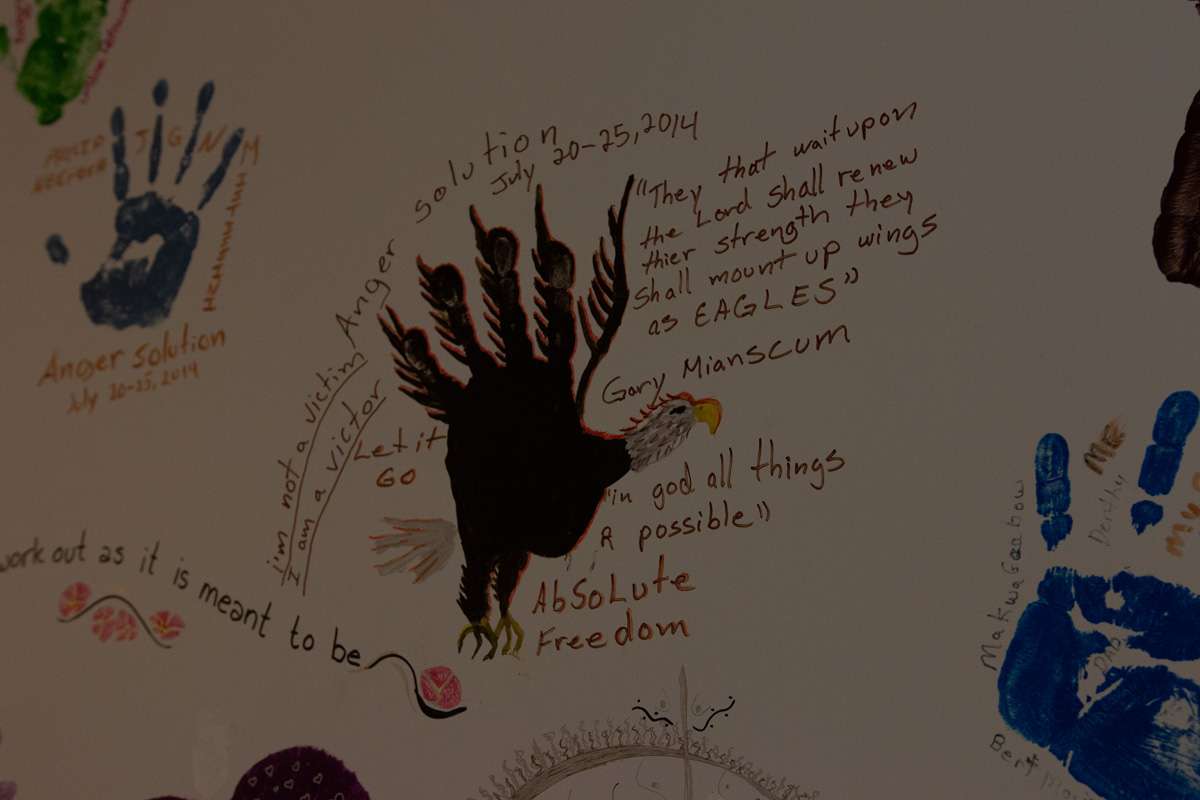 J G N M
Anger Solution
July 20-25, 2014
Anger solution
July 20-25, 2014
"They that wait upon
the Lord shall renew
thier strength they
shall mount up wings
as EAGLES"
Gary Mianscum
i'm not a victim
I am a victor
Let it
GO
"in god all things
R possible"
Absolute
Freedom
work out as it is meant to be
Makwageebow
Me
DAD
Bert